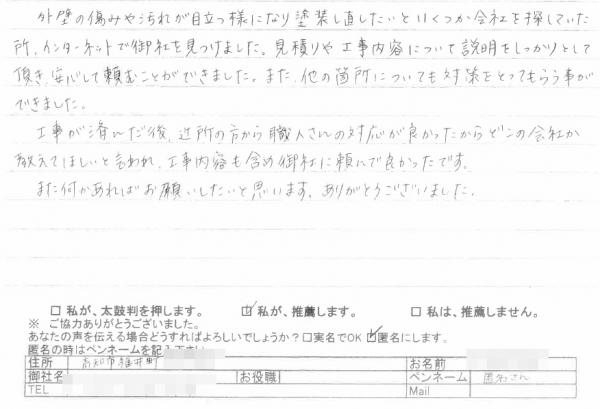 外壁の傷みや汚れが目立つ様になり塗装し直したいといくつか会社を探していた
所、インターネットで御社を見つけました。見積りや工事内容について説明をしっかりとして
頂き、安心して頼むことができました。また、他の箇所についても対策をとってもらう事が
できました。
工事が済んだ後、近所の方から職人さんの対応が良かったからどこの会社か
教えてほしいと言われ、工事内容も含め御社に頼んで良かったです。
また何かあればお願いしたいと思います。ありがとうございました。
□ 私が、太鼓判を押します。 ☑ 私が、推薦します。 □ 私は、推薦しません。
※ ご協力ありがとうございました。
あなたの声を伝える場合どうすればよろしいでしょうか？□実名でOK ☑匿名にします。
匿名の時はペンネームを記入下さい
住所 高知市 お名前
御社名 お役職 ペンネーム 匿名さん
TEL Mail